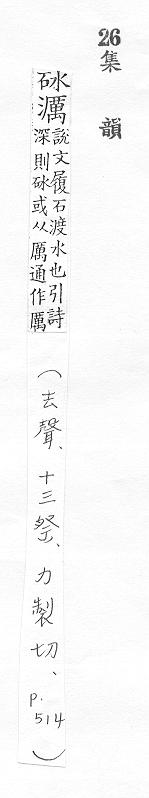 26
集韻
砅濿
說文履石渡水也引詩
深則砅或从厲通作厲
(去聲、十三祭、力製切、p.514)